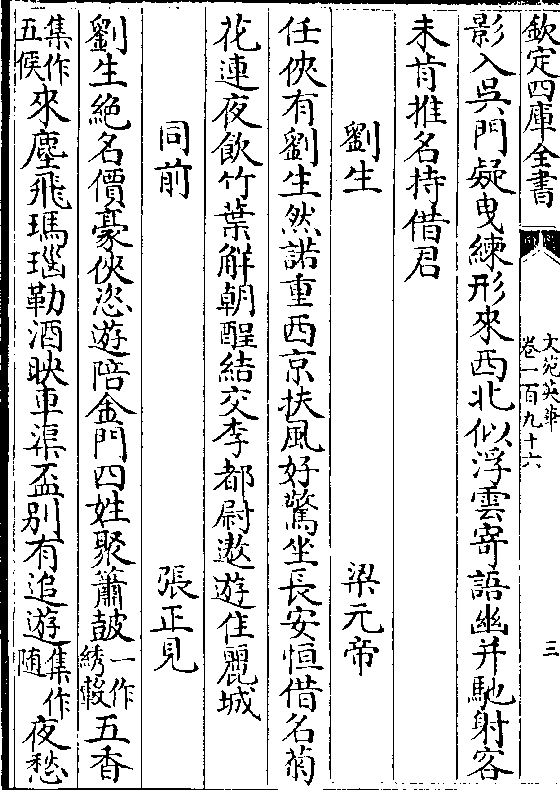 欽定四庫全書
文苑英華
卷一百九十六
三
影入吳門疑曳練形來西北似浮雲寄語幽并馳射客
未肯推名持借君
劉生 梁元帝
任俠有劉生然諾重西京扶風好驚坐長安恒借名菊
花連夜飲竹葉解朝酲結交李都尉遨遊佳麗城
同前 張正見
劉生絶名價豪俠恣遊陪金門四姓聚蕭鼓一作綉轂五香
集作五侯來塵飛瑪瑙勒酒映車渠盃别有追遊集作随夜愁